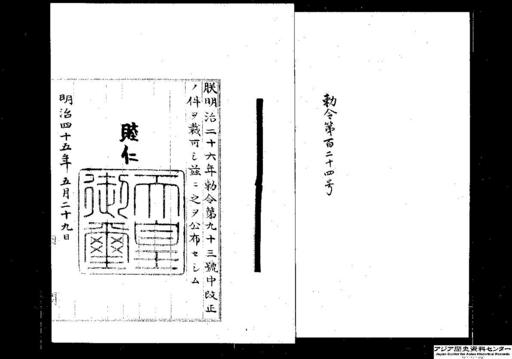 勅令第百二十四号
朕明治二十六年勅令第九十三號中改正
ノ件ヲ裁可シ茲ニ之ヲ公布セシム
睦仁
天皇御璽
明治四十五年五月二十九日
アジア歴史資料センター
Japan Center for Asian Historical Records